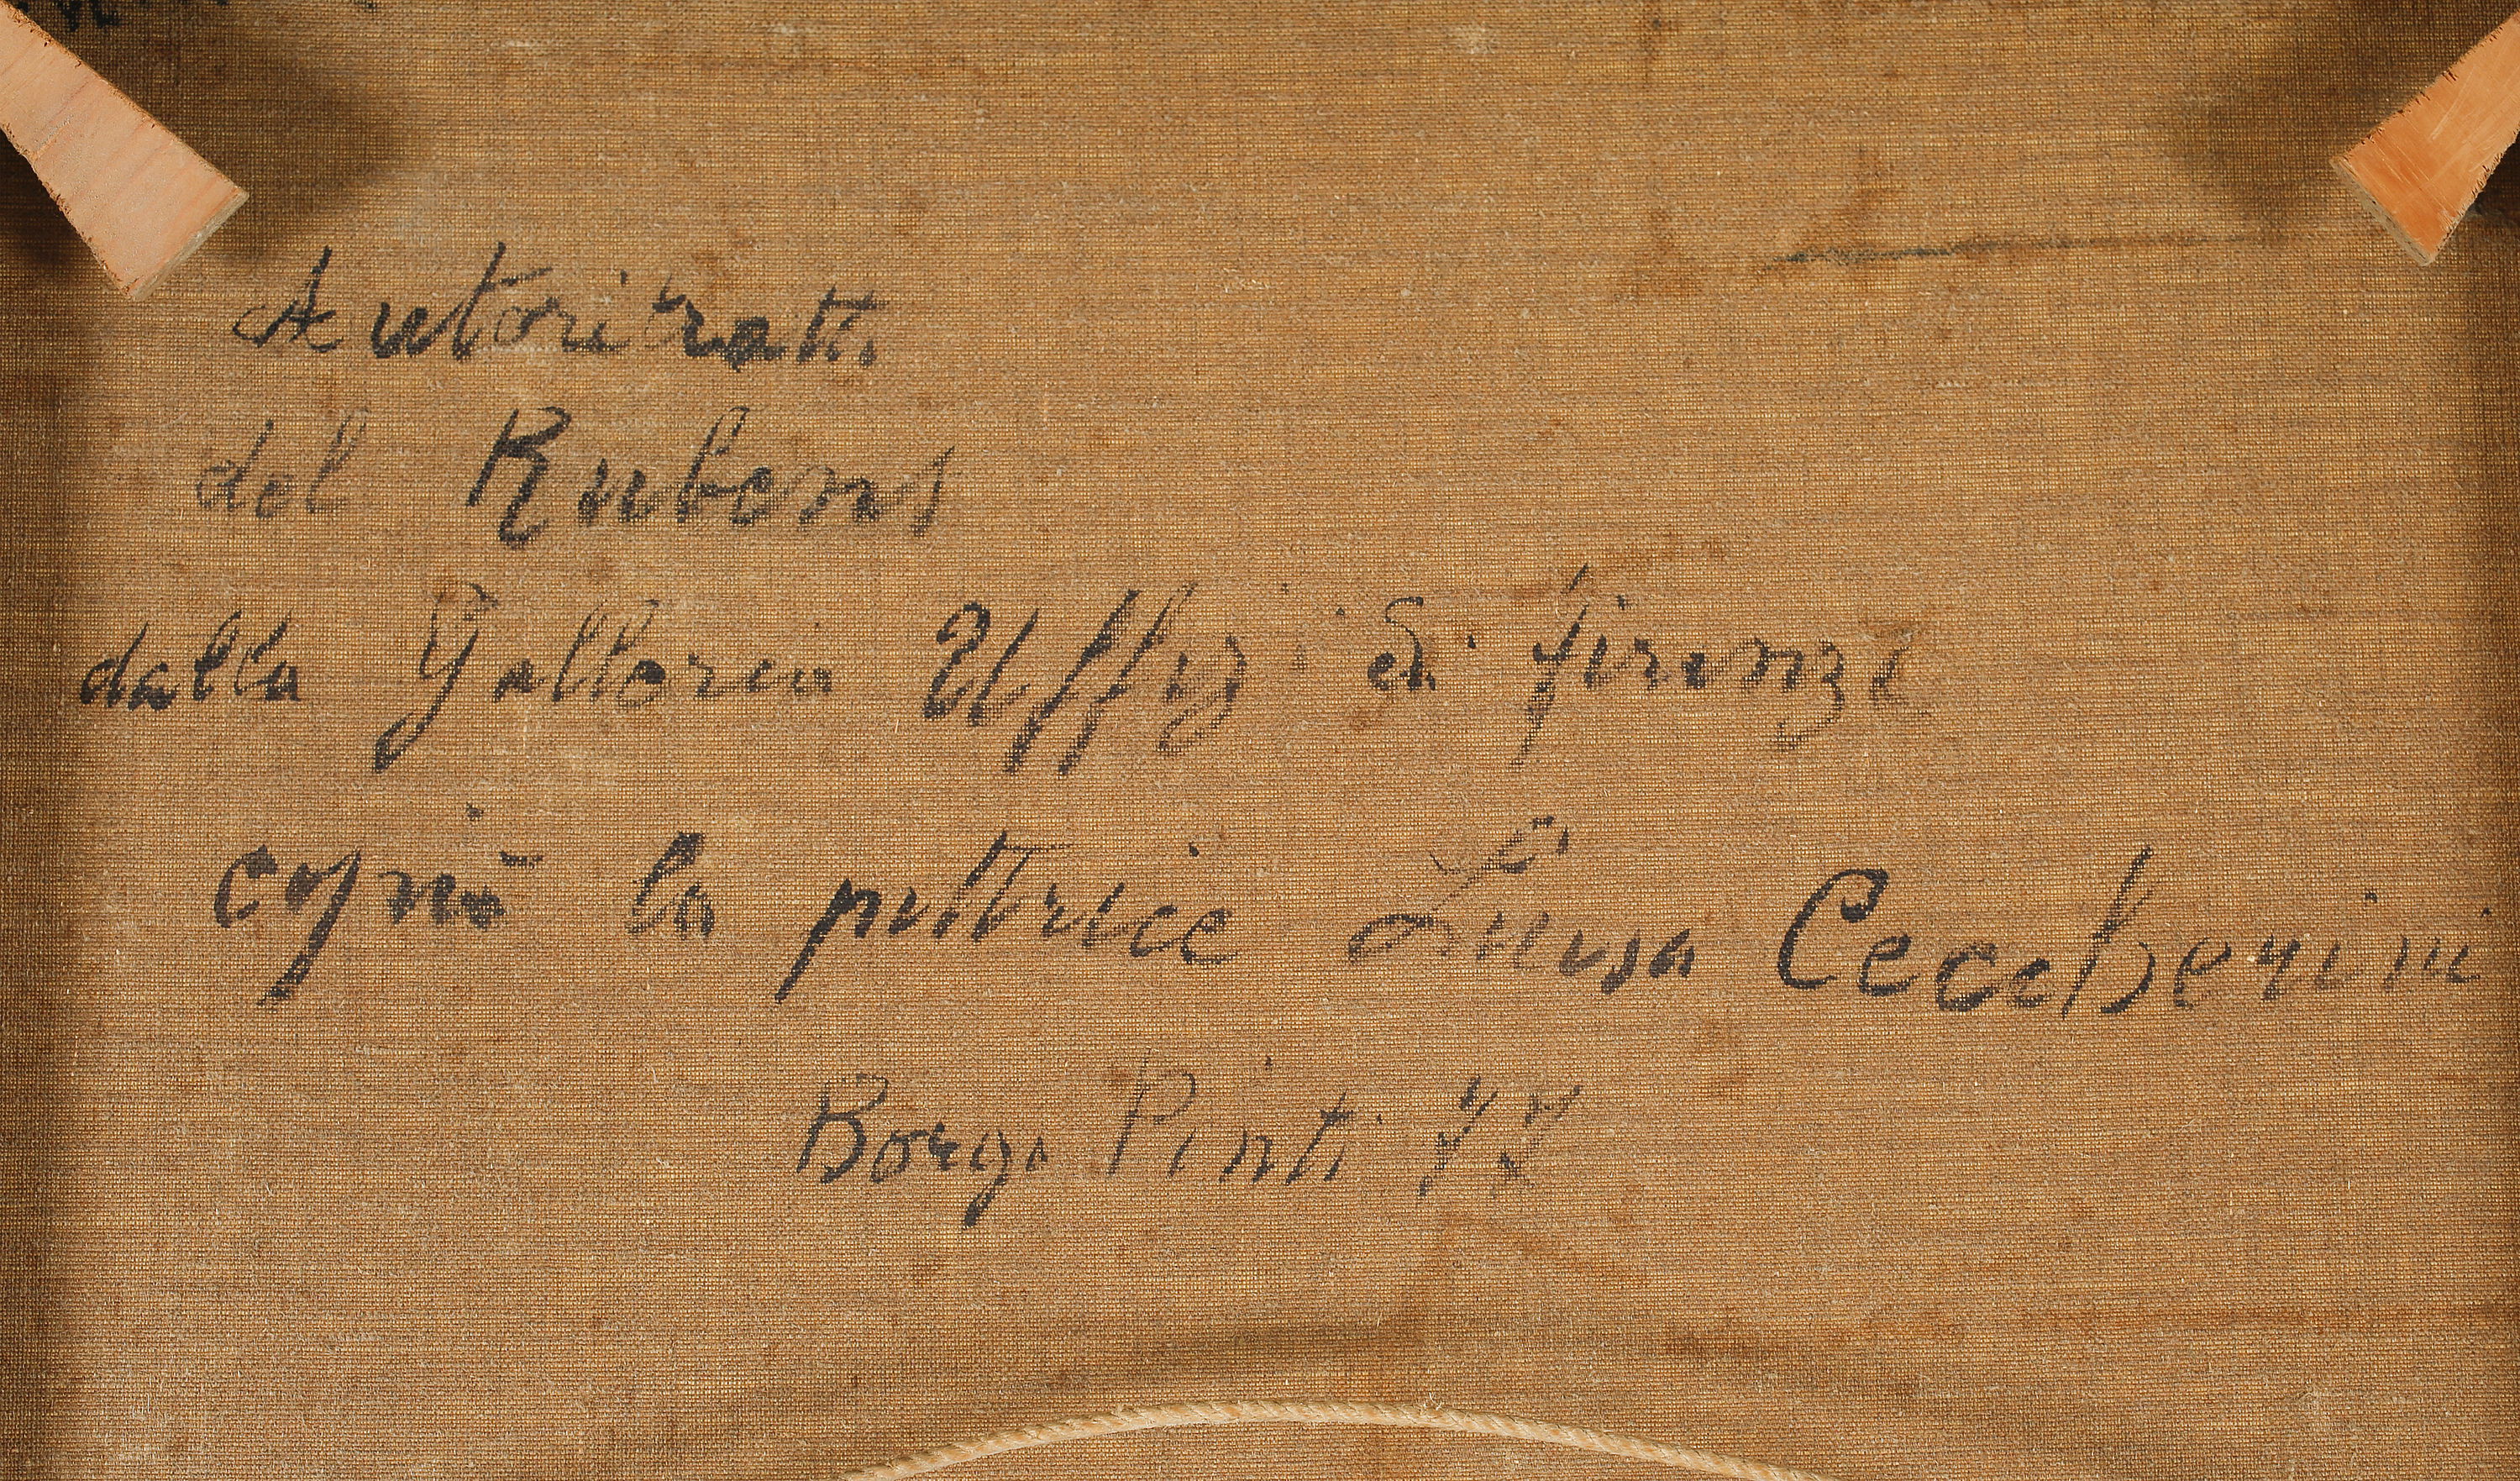 Autoritratto
del Rubens
dalla Galleria Uffizi di Firenze
copiò la pittrice Luisa Ceccherini
Borgo Pinti